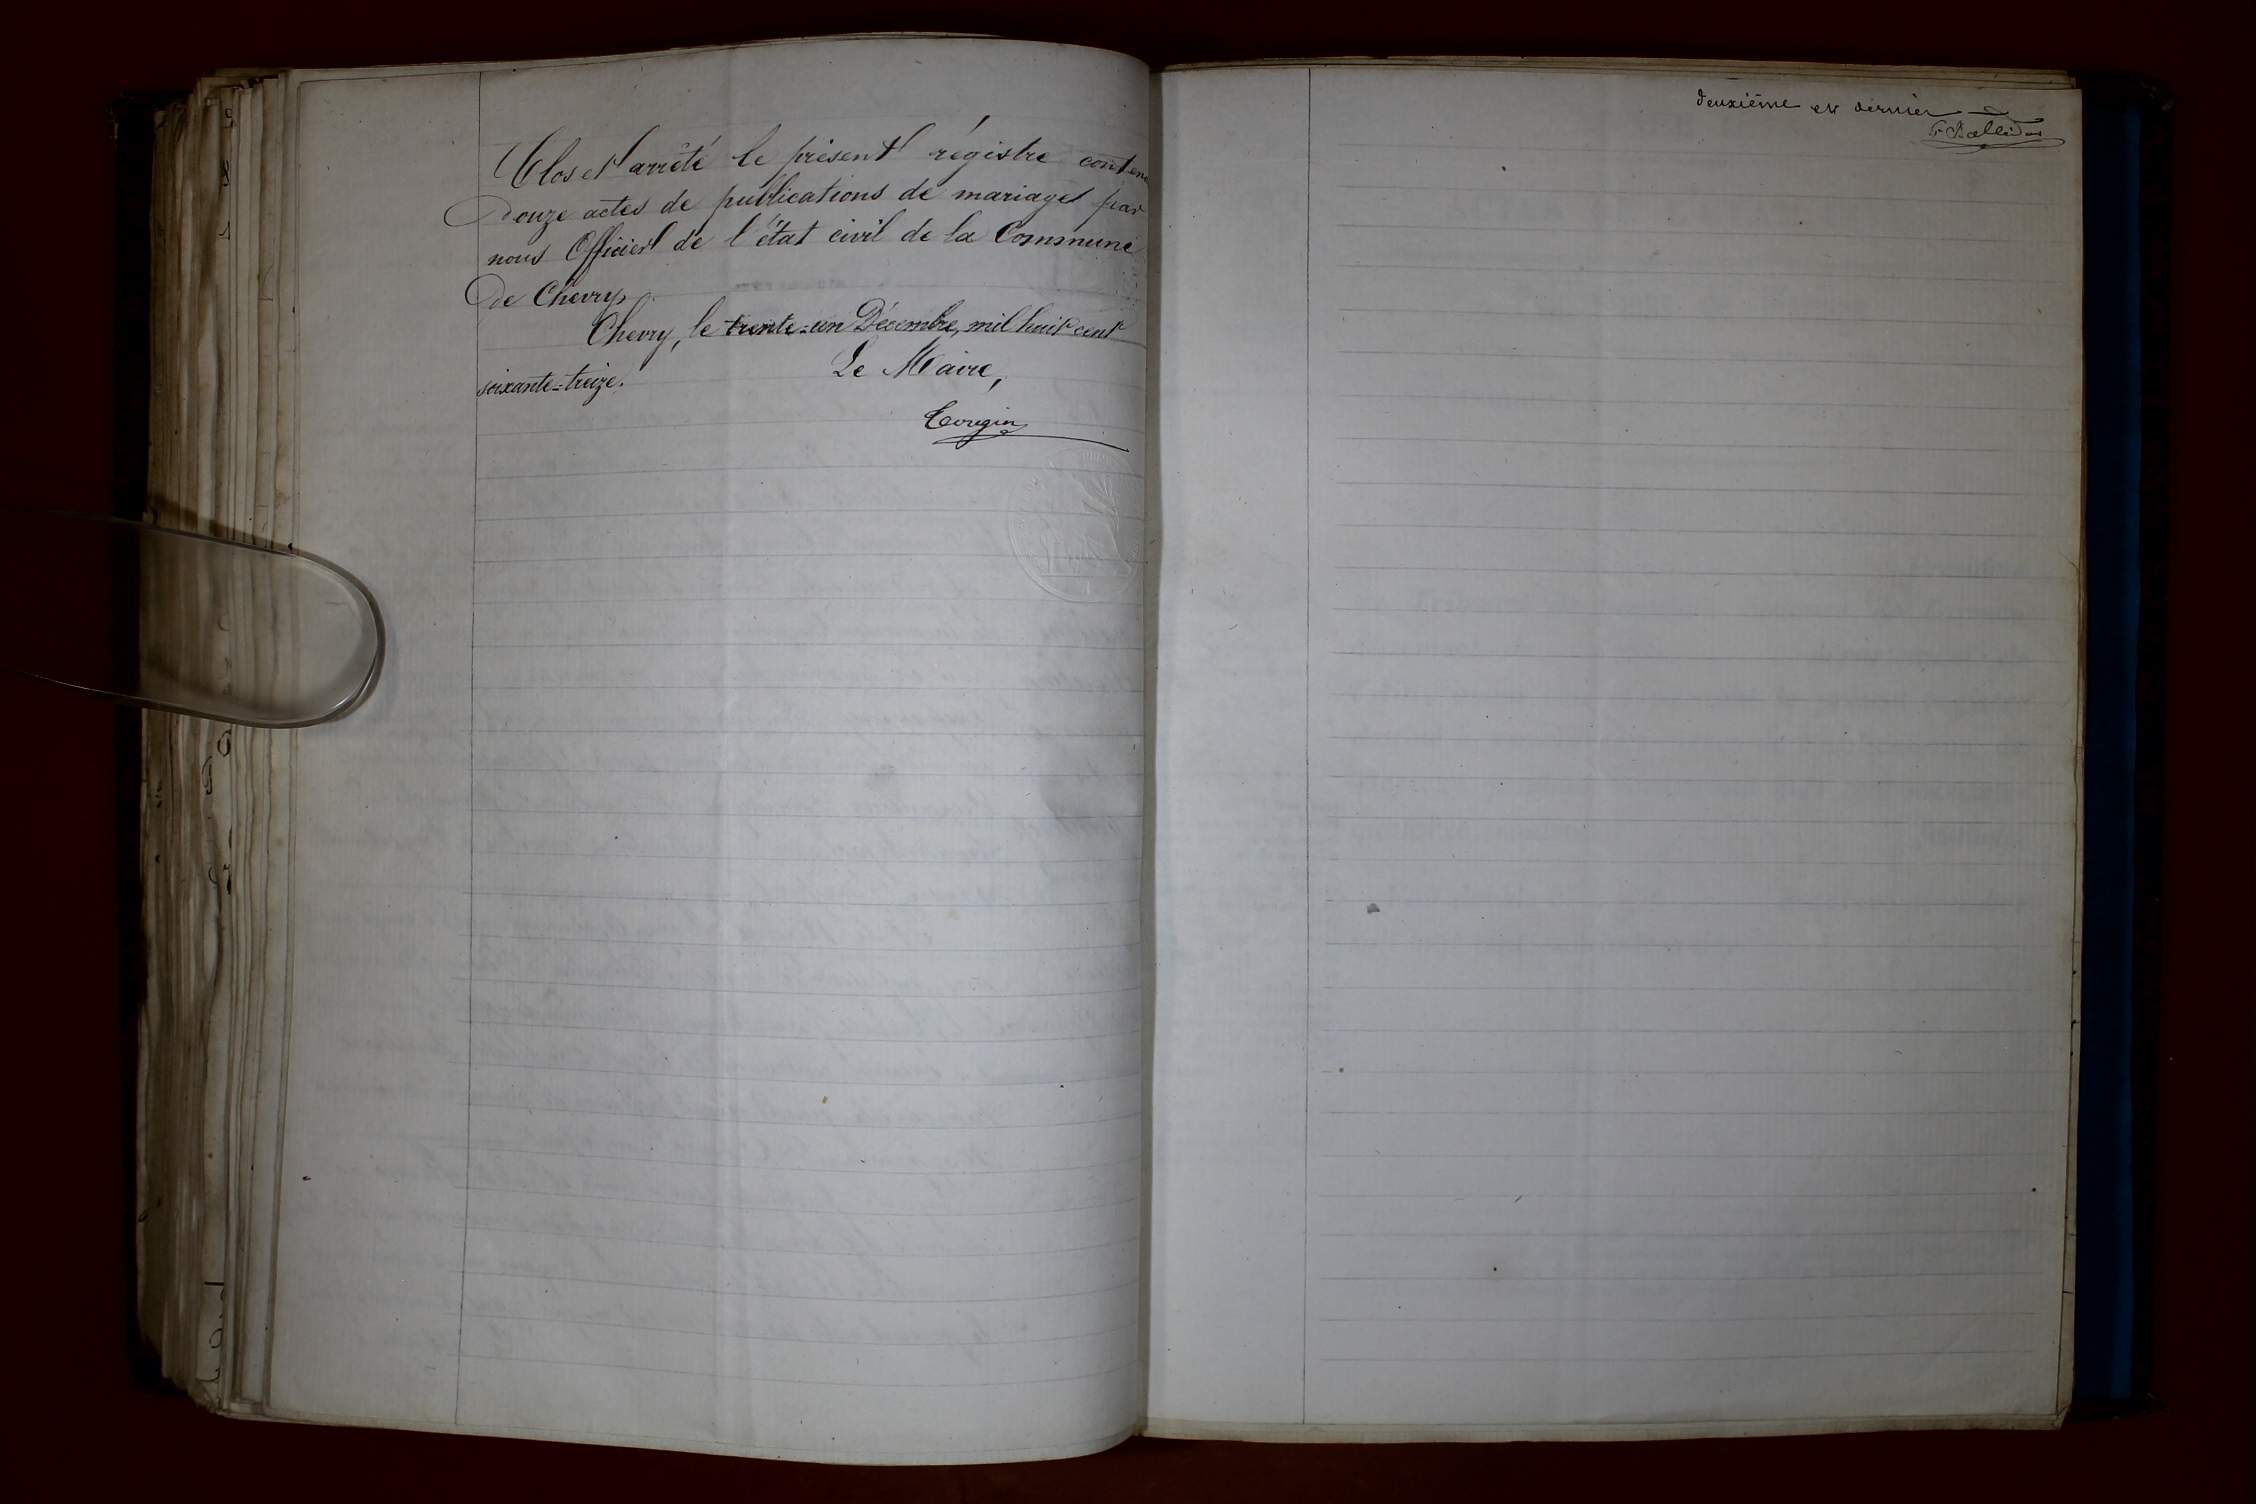 Clos et arrêté le présent régistre conten
Douze actes de publications de mariages par
nous Officier de l'état civil de la Commune
De Chevry.
Chevry, le trente-un Décembre, mil huit cent
soixante-treize.
Le Maire,
deuxième et dernier